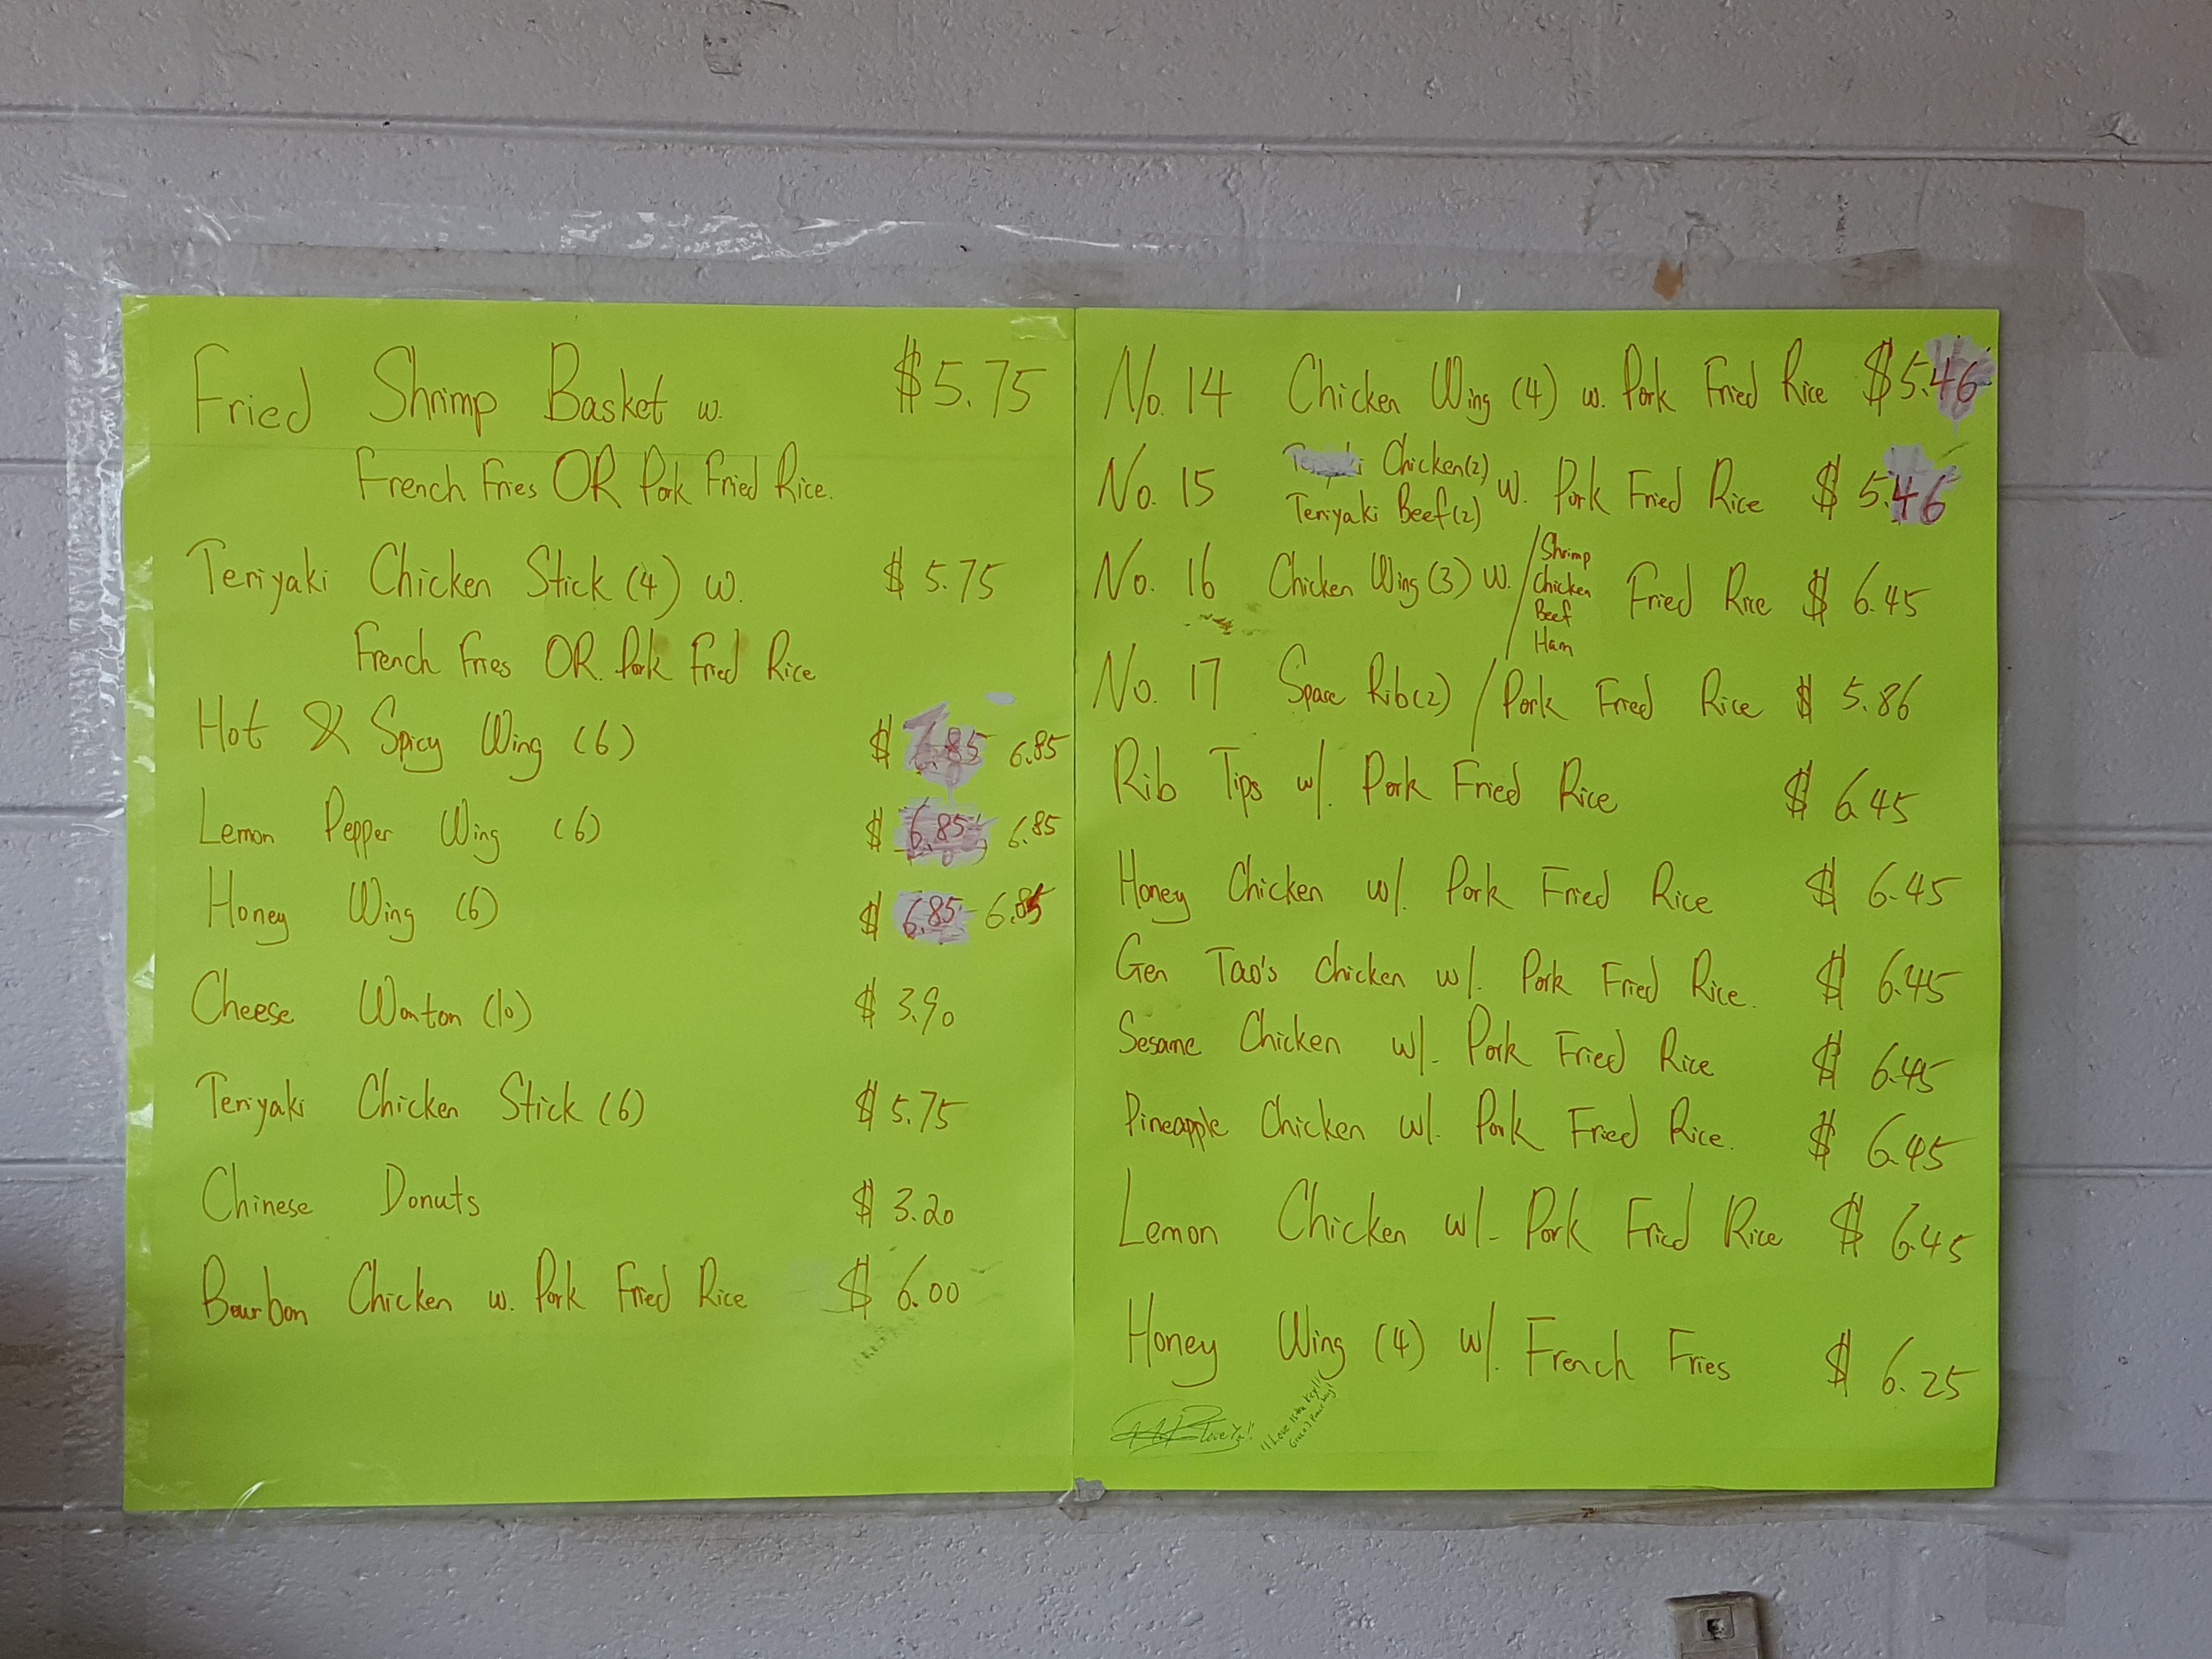 Fried Shrimp Basket w. $5.75
French Fries OR Pork Fried Rice.
Teriyaki Chicken Stick (4) w. $5.75
French Fries OR. Pork Fried Rice
Hot & Spicy Wing (6) $ 6.85 6.85
Lemon Pepper Wing (6) $ 6.85 6.85
Honey Wing (6) $ 6.85 6.85
Cheese Wonton (10) $ 3.90
Teriyaki Chicken Stick (6) $ 5.75
Chinese Donuts $ 3.20
Bourbon Chicken w. Pork Fried Rice $ 6.00
No. 14 Chicken Wing (4) w. Pork Fried Rice $5.46
No. 15 Teriyaki Chicken (2) Teriyaki Beef (2) w. Pork Fried Rice $ 5.46
No. 16 Chicken Wing (3) w. / Shrimp Chicken Beef Ham Fried Rice $ 6.45
No. 17 Spare Rib (2) / Pork Fried Rice $ 5.86
Rib Tips w/. Pork Fried Rice $ 6.45
Honey Chicken w/. Pork Fried Rice $ 6.45
Gen Tao's Chicken w/. Pork Fried Rice. $ 6.45
Sesame Chicken w/. Pork Fried Rice $ 6.45
Pineapple Chicken w/. Pork Fried Rice. $ 6.45
Lemon Chicken w/. Pork Fried Rice $ 6.45
Honey Wing (4) w/. French Fries $ 6.25
Love Is the Key!!